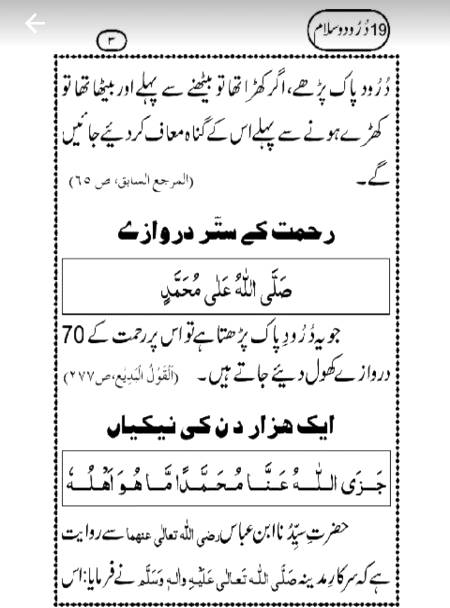 19 دُرُود و سلام
٣
دُرُود پاک پڑھے، اگر کھڑا تھا تو بیٹھنے سے پہلے اور بیٹھا تھا تو
کھڑے ہونے سے پہلے اس کے گناہ معاف کر دئیے جائیں
گے۔ (المرجع السابق، ص ٦٥)
رحمت کے ستّر دروازے
صَلَّی اللهُ عَلٰی مُحَمَّدٍ
جو یہ دُرُودِ پاک پڑھتا ہے تو اس پر رحمت کے 70
دروازے کھول دیئے جاتے ہیں۔ (اَلْقَوْلُ الْبَدِیْع، ص ٢٧٧)
ایک ھزار دن کی نیکیاں
جَزَی اللّٰهُ عَنَّا مُحَمَّدًا مَّا هُوَ اَهْلُهٗ
حضرتِ سیِّدُنا ابن عباس رضی الله تعالٰی عنهما سے روایت
ہے کہ سرکارِ مدینہ صَلَّی الله تَعَالٰی عَلَیْهِ واٰلهٖ وَسَلَّم نے فرمایا: اس